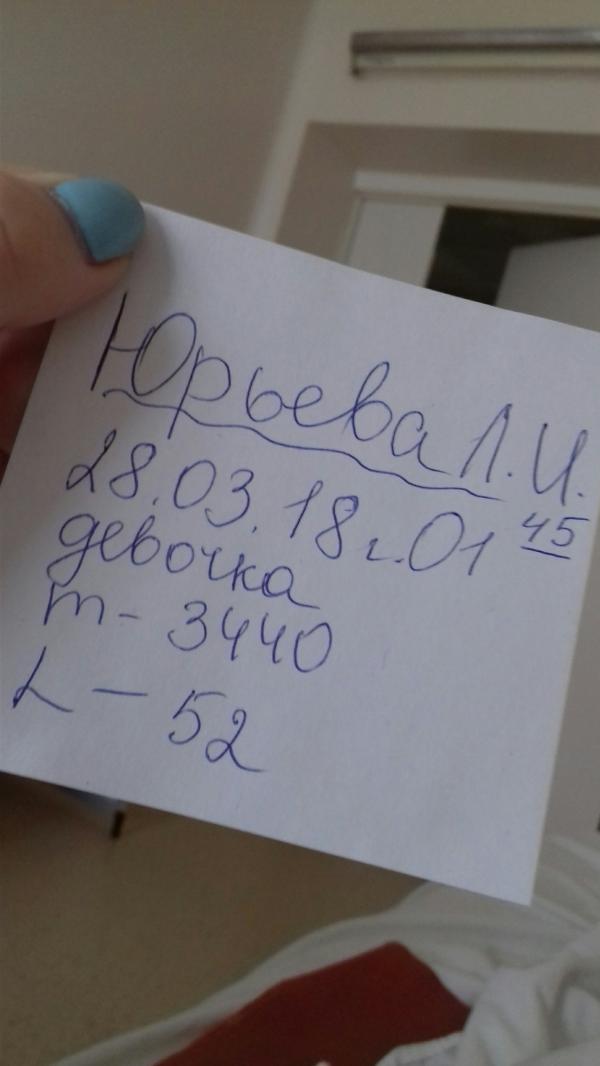 Юрьева Л.И.
28.03.18г. 01 45
девочка
m - 3440
L - 52